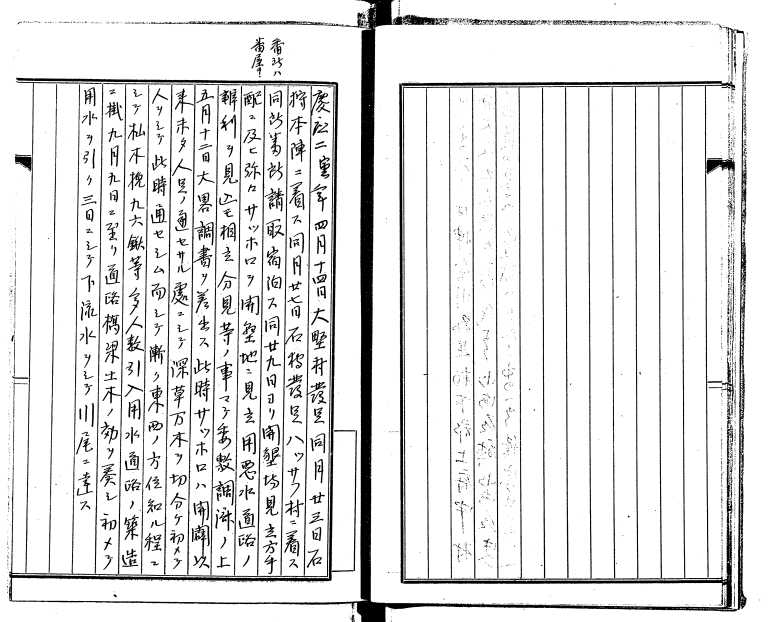 番所ハ
番屋
慶応二寅年四月十四日大野村發足同月廿三日石
狩本陣ニ着ス同月廿七日石狩發足ハッサフ村ニ着ス
同所番所請取宿泊ス同廿九日ヨリ開墾場見立方手
配ニ及ヒ弥ロサッホロヲ開墾地ニ見立用悪水道路ノ
辨利ヲ見込モ相立分見等ノ事マテ委敷調済ノ上
五月十二日大畧調書ヲ差出ス此時サッホロハ開闢以
来未タ人足ノ通セサル處ニシテ深草万木ヲ切分ケ初メテ
人ヲシテ此時通セシム而シテ漸ク東西ノ方位知ル程ニ
シテ杣木挽九六鍬等多人数引入用水道路ノ築造
ニ掛九月九日ニ至リ道路橋梁土木ノ効ヲ奏シ初メテ
用水ヲ引ク三日ニシテ下流水ヲシテ川尾ニ達ス